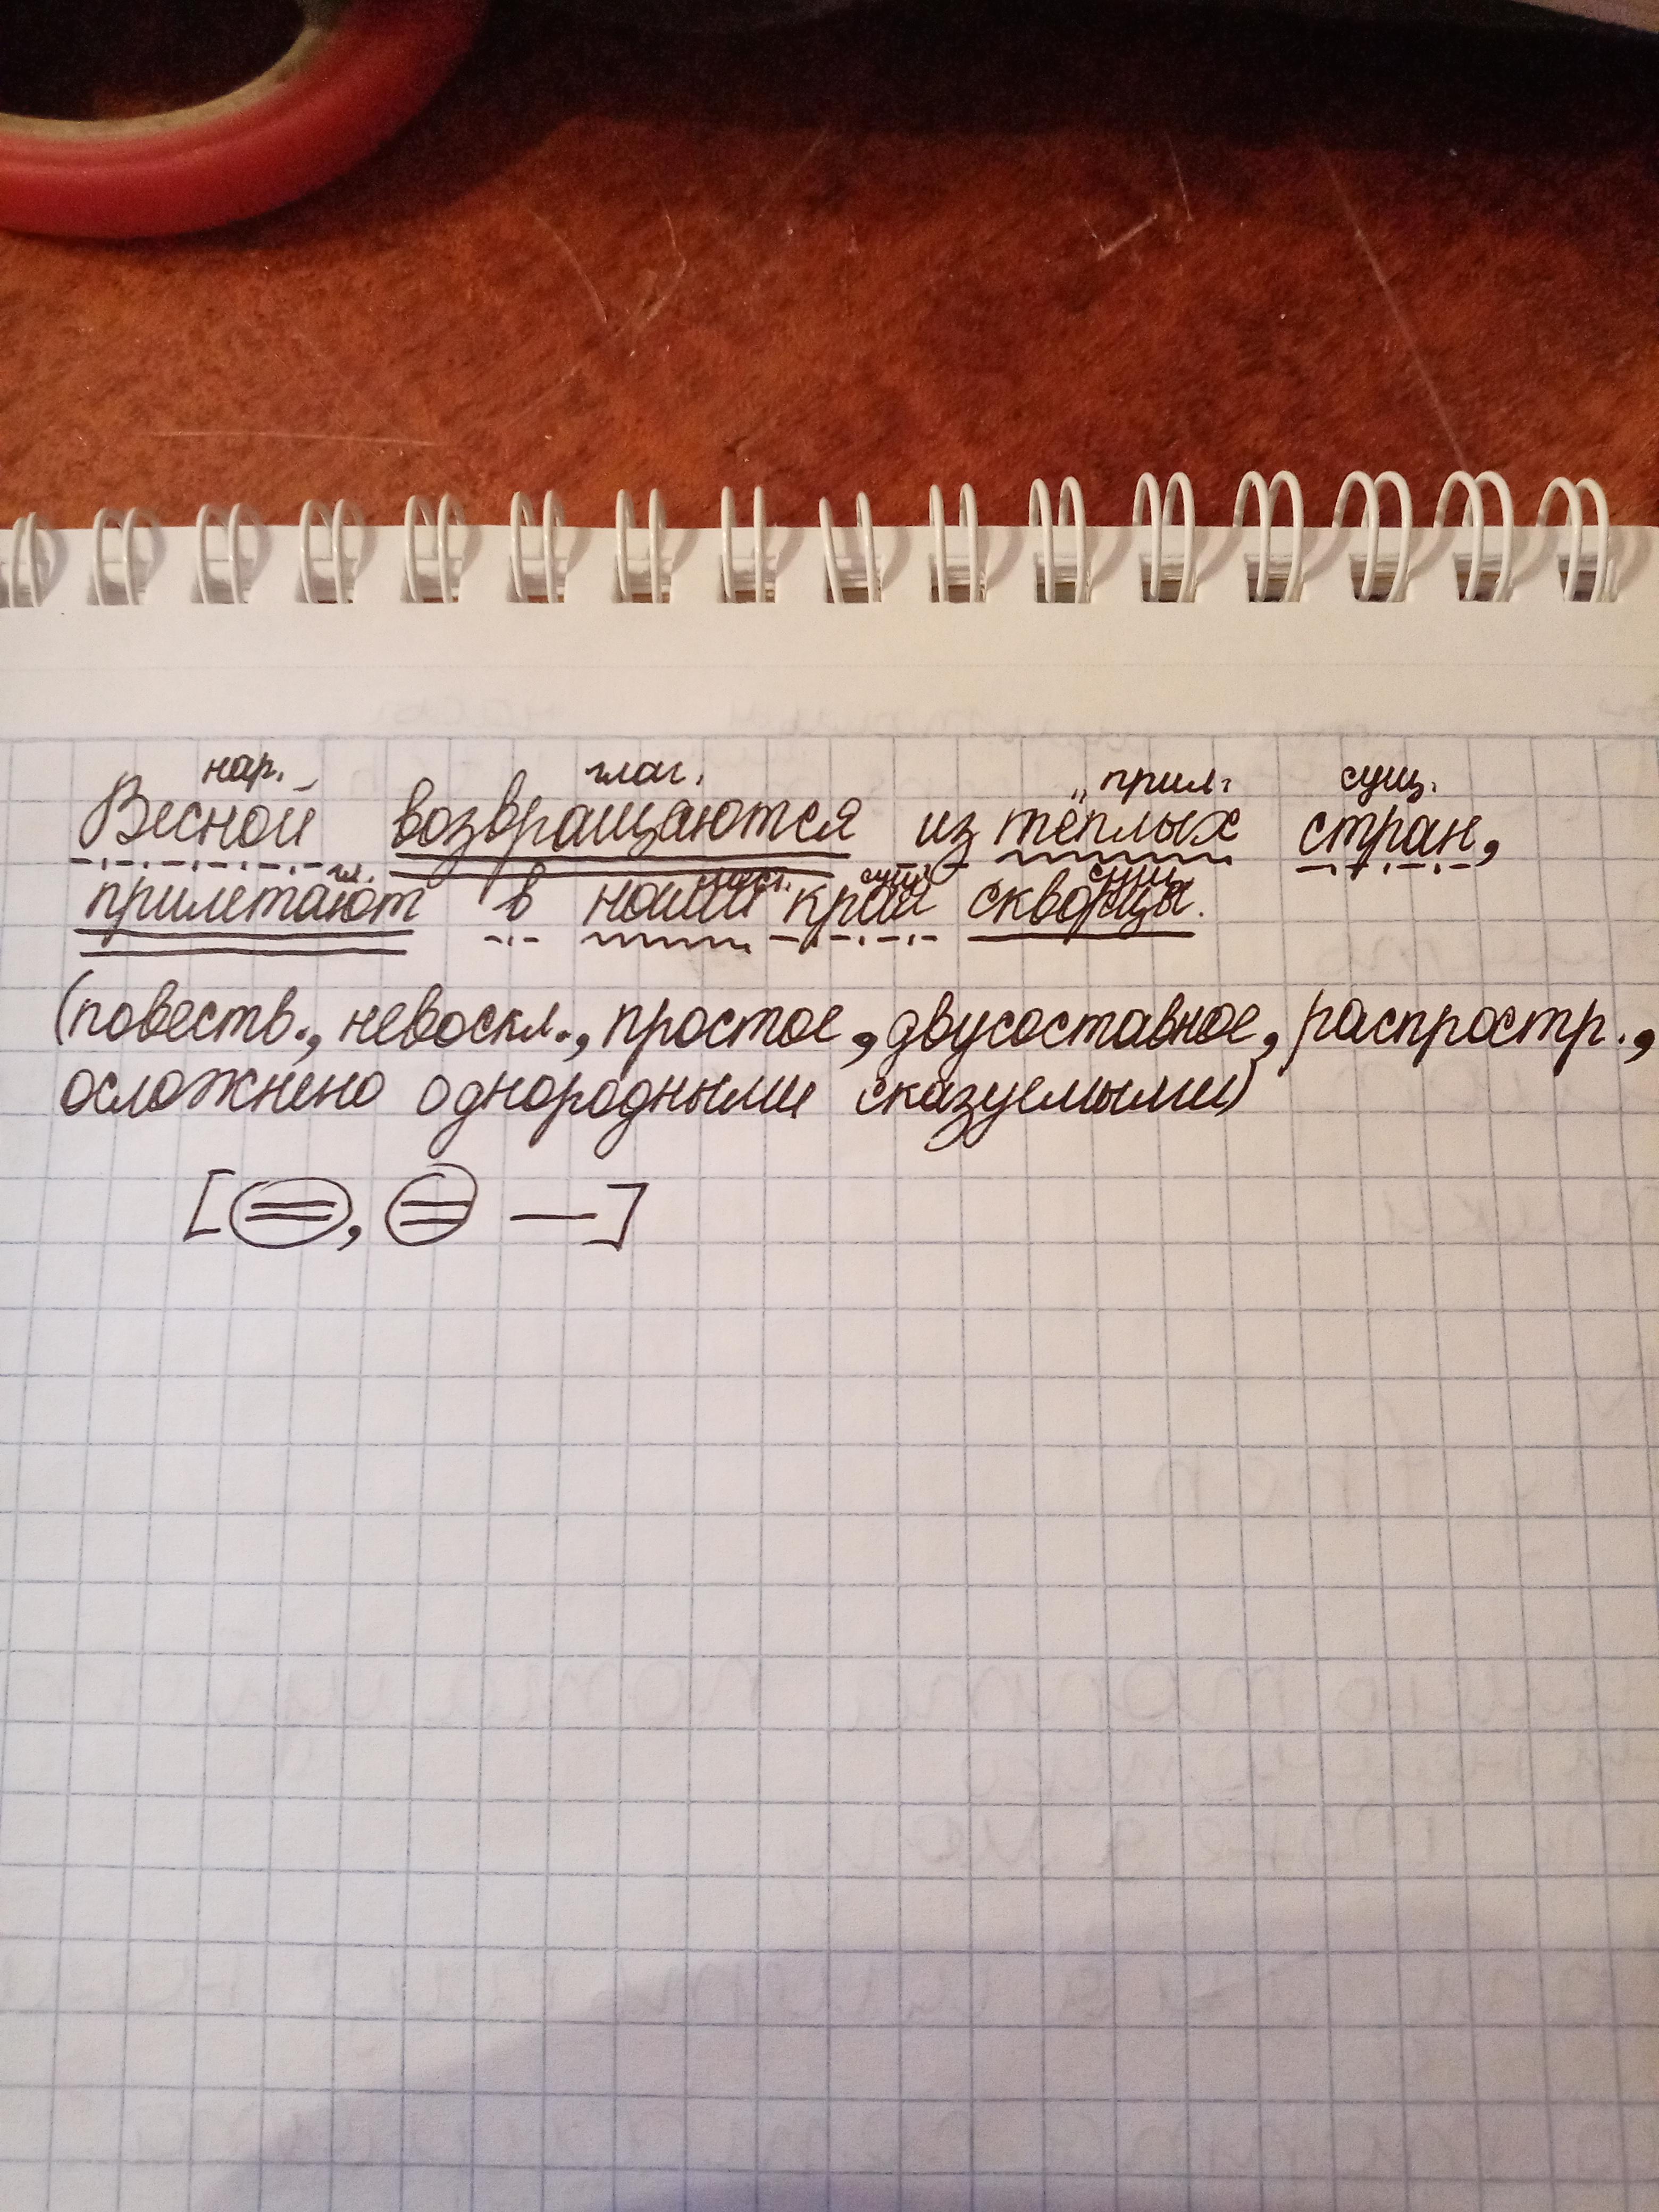 нар. глаг. прил. сущ.
Весной возвращаются из тёплых стран,
гл. мест. сущ. сущ.
прилетают в наши края скворцы.
(повеств., невоскл., простое, двусоставное, распростр.,
осложнено однородными сказуемыми)
[=, = —]